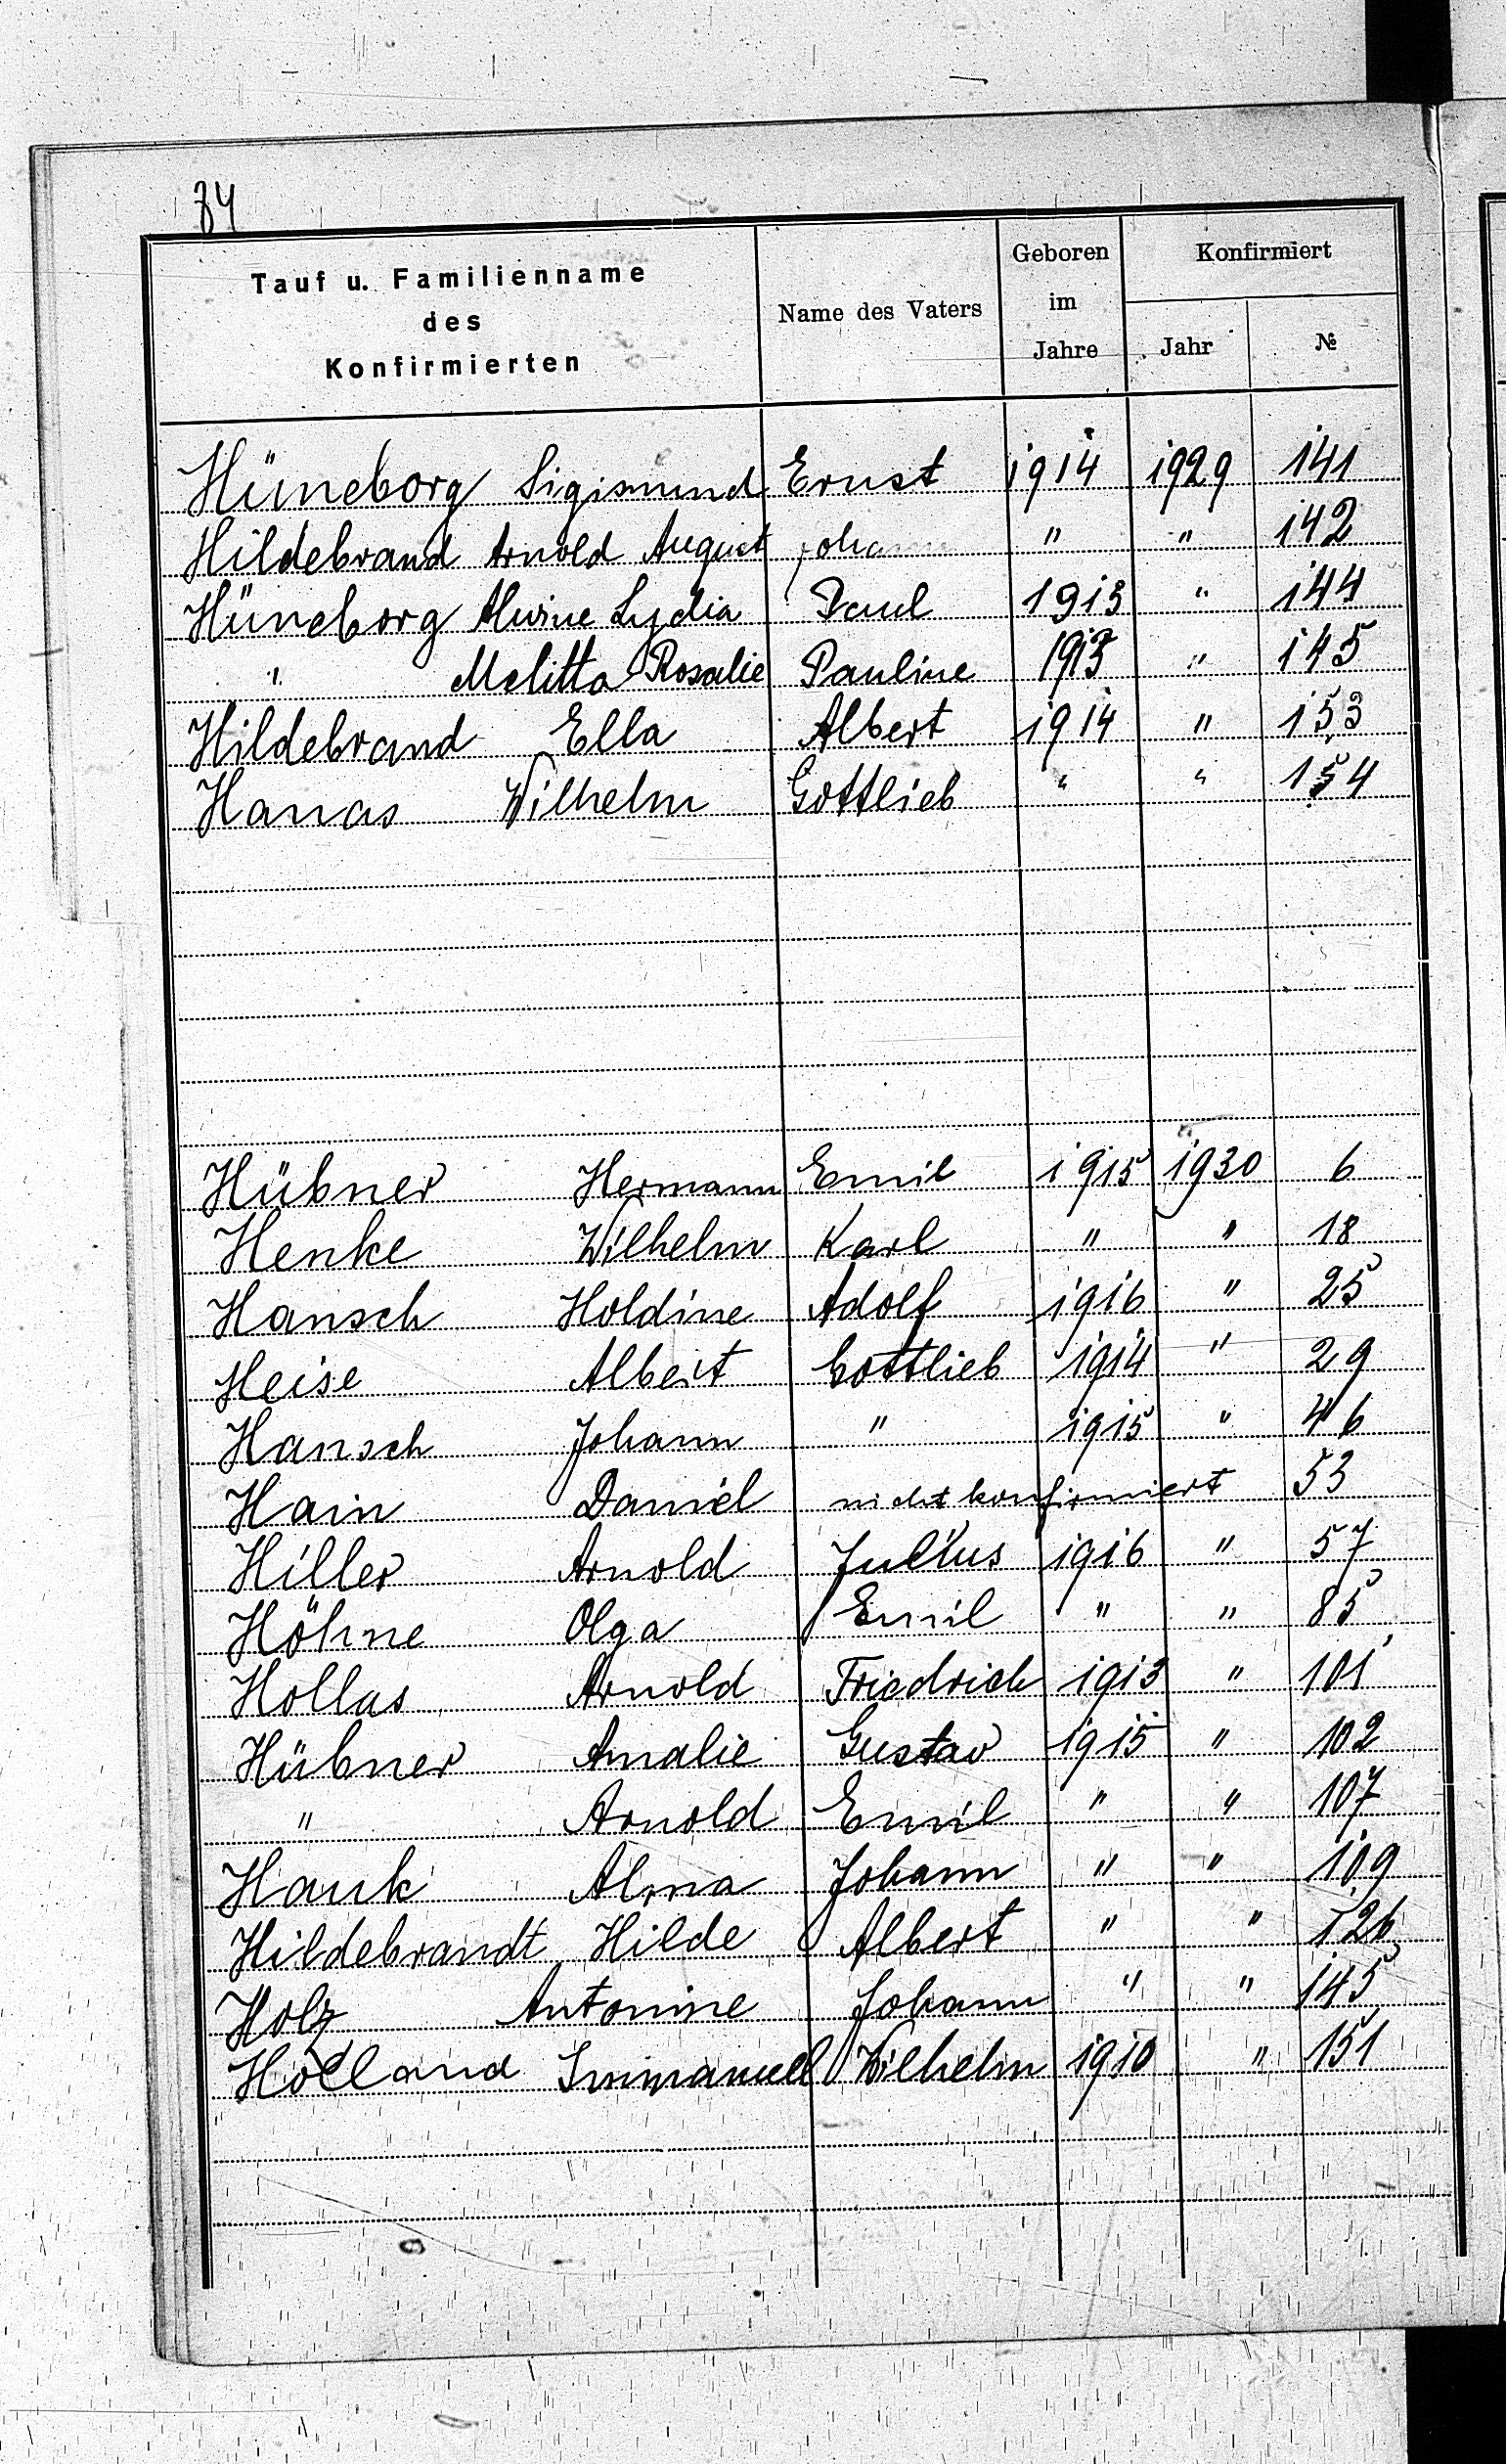 84
Tauf u. Familienname des Konfirmierten | Name des Vaters | Geboren im Jahre | Konfirmiert Jahr | №
Hüneborg Sigismund Ernst 1914 1929 141
Hildebrand Arnold August Johann " " 142
Hüneborg Alwine Lydia Paul 1913 " 144
" Melitta Rosalie Pauline 1913 " 145
Hildebrand Ella Albert 1914 " 153
Hanas Wilhelm Gottlieb " " 154
Hübner Hermann Emil 1915 1930 6
Henke Wilhelm Karl " " 18
Hansch Holdine Adolf 1916 " 25
Heise Albert Gottlieb 1914 " 29
Hansch Johann " 1915 " 46
Hain Daniel nicht konfirmiert 53
Hiller Arnold Julius 1916 " 57
Höhne Olga Emil " " 85
Hollas Arnold Friedrich 1913 " 101
Hübner Amalie Gustav 1915 " 102
" Arnold Emil " " 107
Hauk Alma Johann " " 109
Hildebrandt Hilde Albert " " 126
Holz Antonine Johann " " 145
Holland Immanuell Wilhelm 1910 " 151